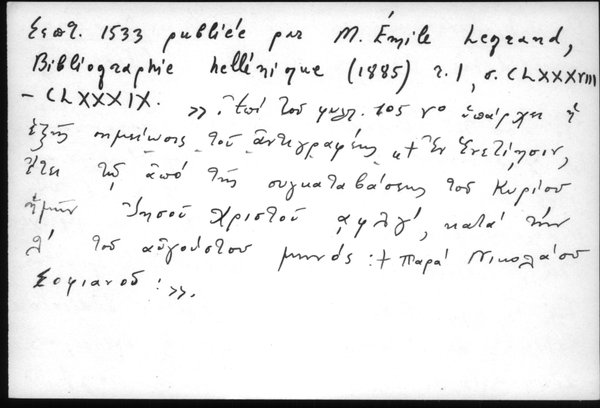 Σεπτ. 1533 publiée par M. Émile Legrand,
Bibliographie hellénique (1885) τ. 1, σ. CLXXXVIII
- CLXXXIX. » : Ἐπί τοῦ φυλλ. 105 r° ὑπάρχει ἡ
ἑξῆς σημείωσις τοῦ ἀντιγραφέως « + Ἐν Ἐνετίῃσιν,
ἔτει τῷ ἀπό τῆς συγκαταβάσεως τοῦ Κυρίου
ἡμῶν Ἰησοῦ Χριστοῦ ͵αφλγ΄, κατά τήν
λ΄ τοῦ αὐγούστου μηνός : + Παρά Νικολάου
Σοφιανοῦ : ».